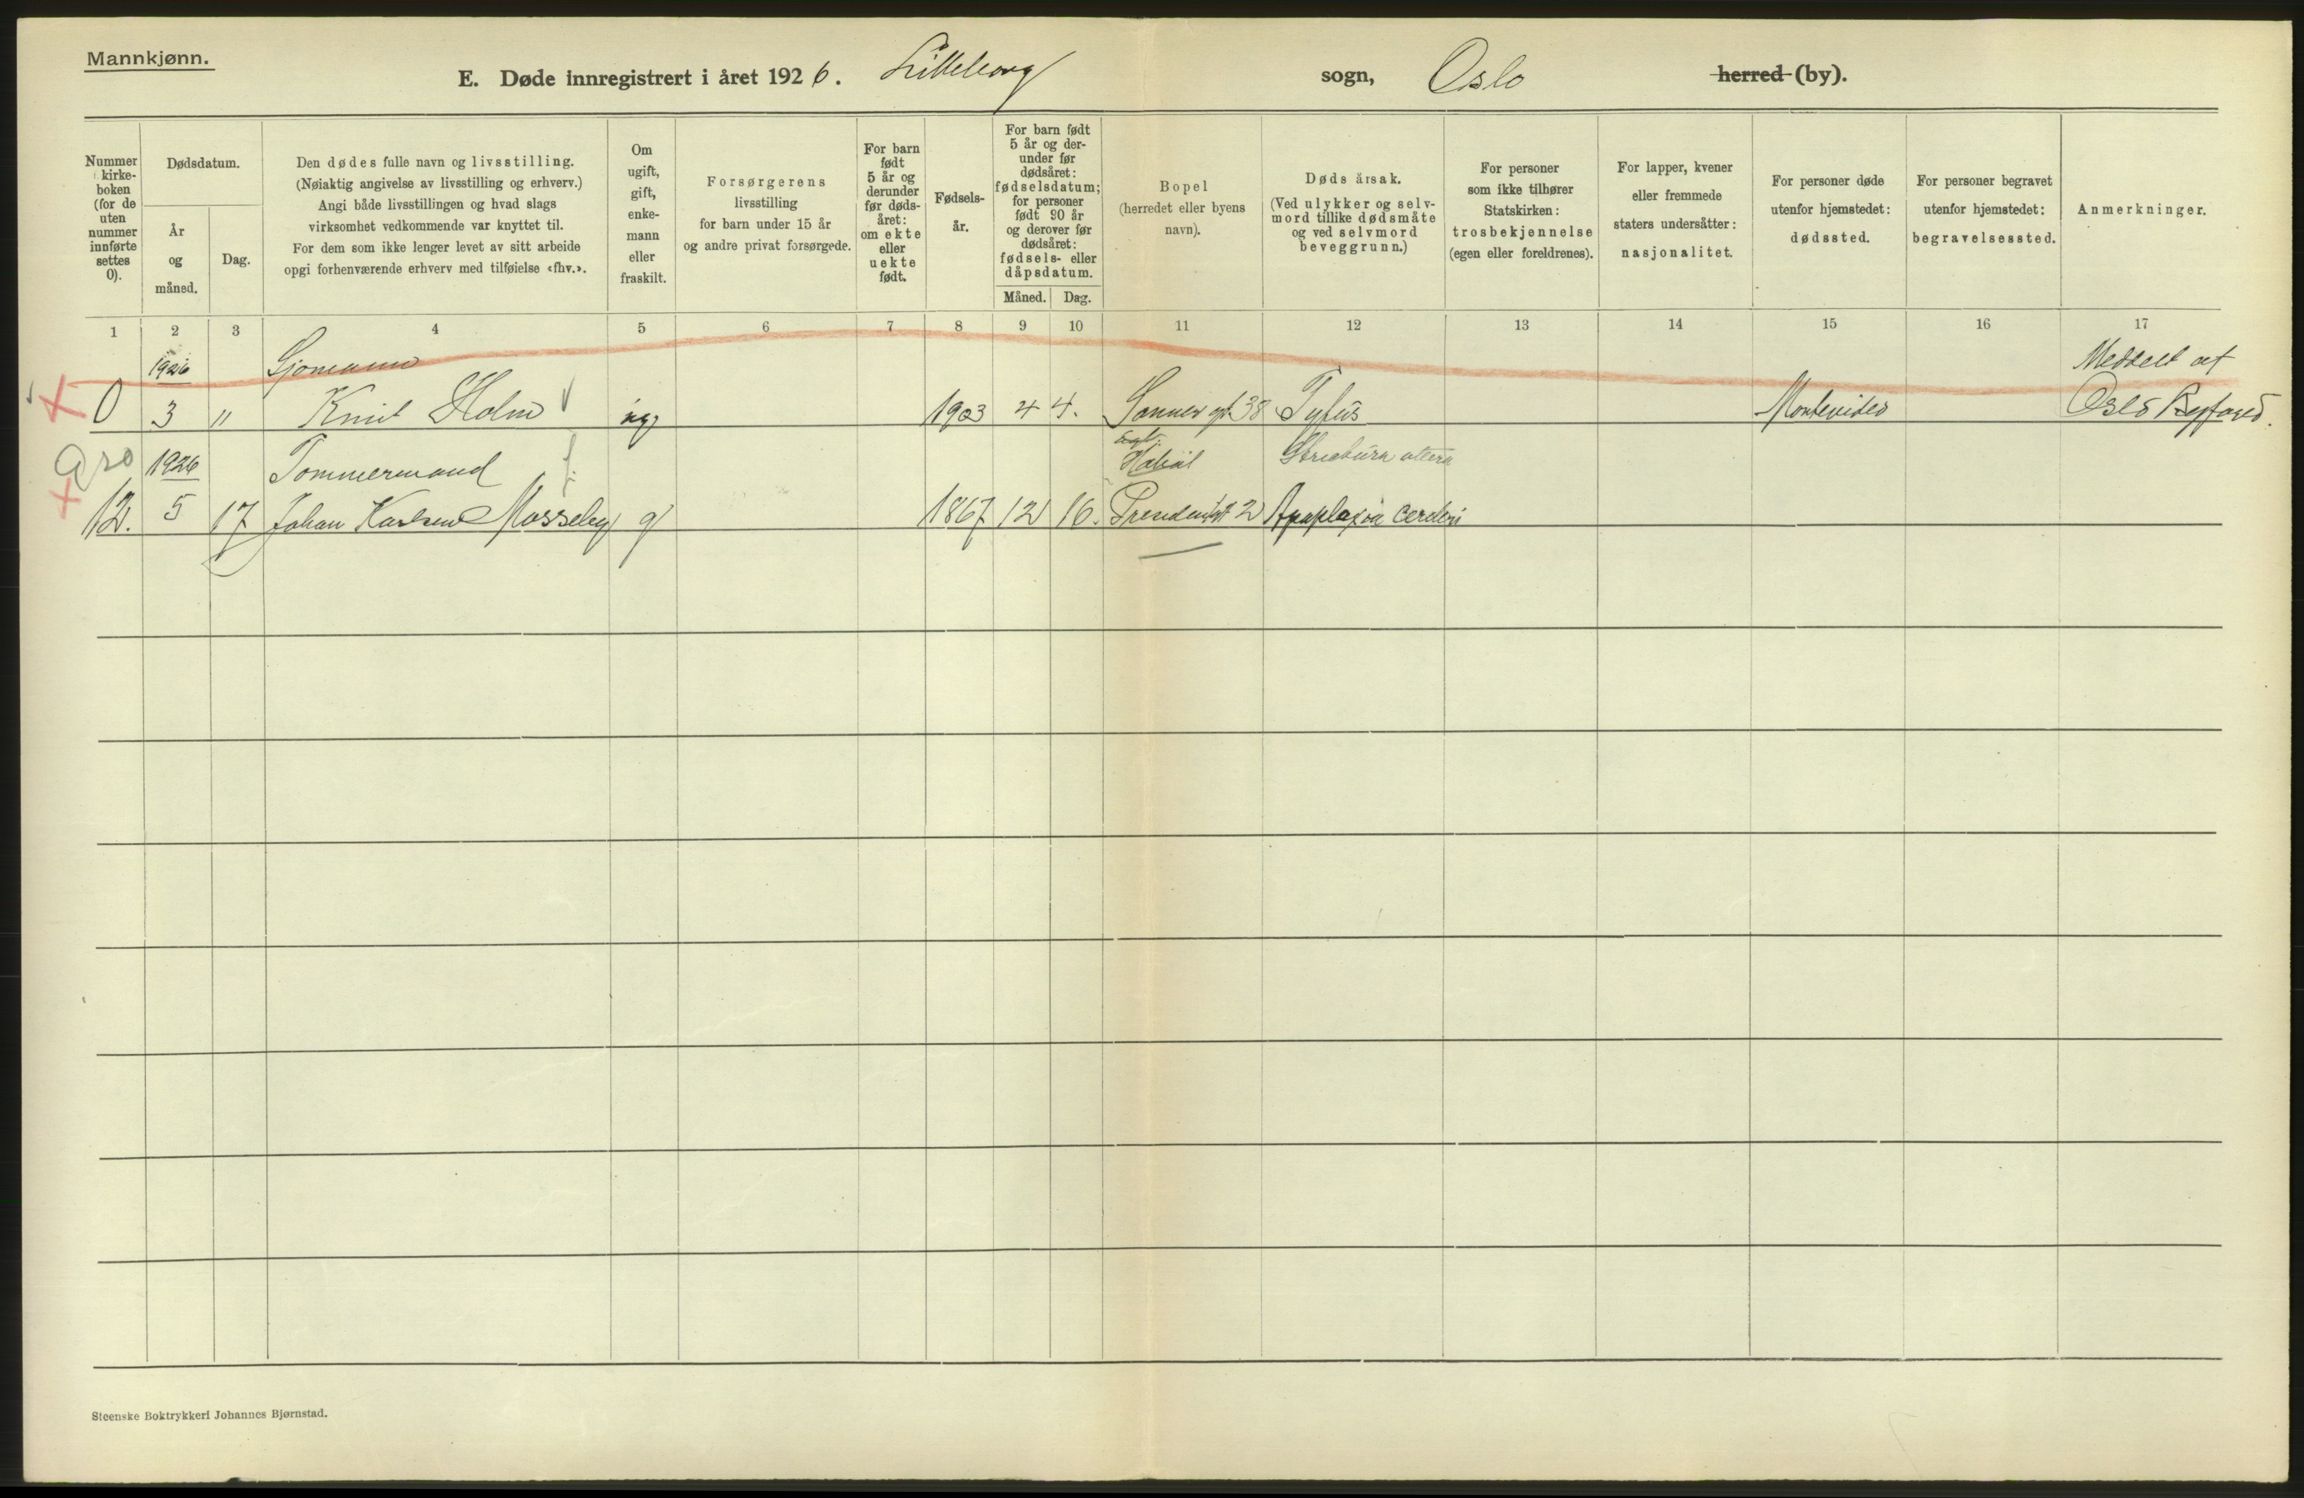 Mannkjønn.
E. Døde innregistrert i året 1926. Lilleborg sogn, Oslo herred (by).
Nummer i kirke-
boken
(for de
uten
nummer
innførte
settes
0).
Dødsdatum.
År
og
måned.
Dag.
Den dødes fulle navn og livsstilling.
(Nøiaktig angivelse av livsstilling og erhverv.)
Angi både livsstillingen og hvad slags
virksomhet vedkommende var knyttet til.
For dem som ikke lenger levet av sitt arbeide
opgi forhenværende erhverv med tilføielse «fhv.».
Om
ugift,
gift,
enke-
mann
eller
fraskilt.
Forsørgerens
livsstilling
for barn under 15 år
og andre privat forsørgede.
For barn
født
5 år og
derunder
før døds-
året:
om ekte
eller
uekte
født.
Fødsels-
år.
For barn født
5 år og der-
under før
dødsåret:
fødselsdatum;
for personer
født 90 år
og derover før
dødsåret:
fødsels- eller
dåpsdatum.
Måned. Dag.
Bopel
(herredet eller byens
navn).
Dødsårsak.
(Ved ulykker og selv-
mord tillike dødsmåte
og ved selvmord
beveggrunn.)
For personer
som ikke tilhører
Statskirken:
trosbekjennelse
(egen eller foreldrenes).
For lapper, kvener
eller fremmede
staters undersåtter:
nasjonalitet.
For personer døde
utenfor hjemstedet:
dødssted.
For personer begravet
utenfor hjemstedet:
begravelsessted.
Anmerkninger.
1 2 3 4 5 6 7 8 9 10 11 12 13 14 15 16 17
1926 Sjömann Meddelt af
0 3 " Knut Holm ug. 1903 4 4. Sannergt. 38 Tyfus Montevideo Oslo Byfoged.
1926 Tömmermand Strictura
12. 5 17 Johan Karlsen Mosseby g 1867 12 16. 2 Apoplexia cerebri
Steenske Boktrykkeri Johannes Bjørnstad.